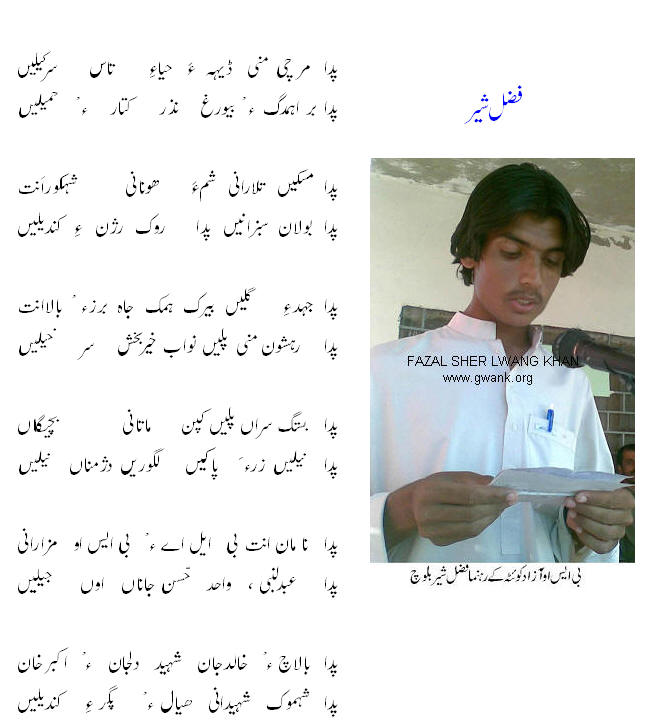 فضل شیر
پدا مرچی منی ڈیہہ ءَ حیاءِ تاس سرکیلیں
پدا بر اہمدگ ءُ بیورغ نذر کتار ءُ حمیلیں
پدا مسکیں تلارانی شمءَ ھونانی شہکورانت
پدا بولان سبزانیں پدا روک رژن ءِ کندیلیں
پدا جہدءِ گلیں بیرک ہمک جاہ برزءُ بالاانت
پدا رہشون منی پلیں نواب خیربخش سر
پدا بستگ سراں پلیں کپن ماتانی بچیگاں
پدا نیلیں زرءَ پاکیں لگوریں دژمناں نیلیں
پدا نامان انت بی ایل اے ءُ بی ایس او مزارانی
پدا عبدلنبی، واحد حسن جاناں اوں جیلیں
پدا بالاچ ءُ خالدجان شہید دلجان ءُ اکبرخان
پدا شہموک شہیدانی ھیال ءُ پگر ءِ کندیلیں
FAZAL SHER LWANG KHAN
www.gwank.org
بی ایس او آزاد کوئٹہ کے رہنما فضل شیر بلوچ